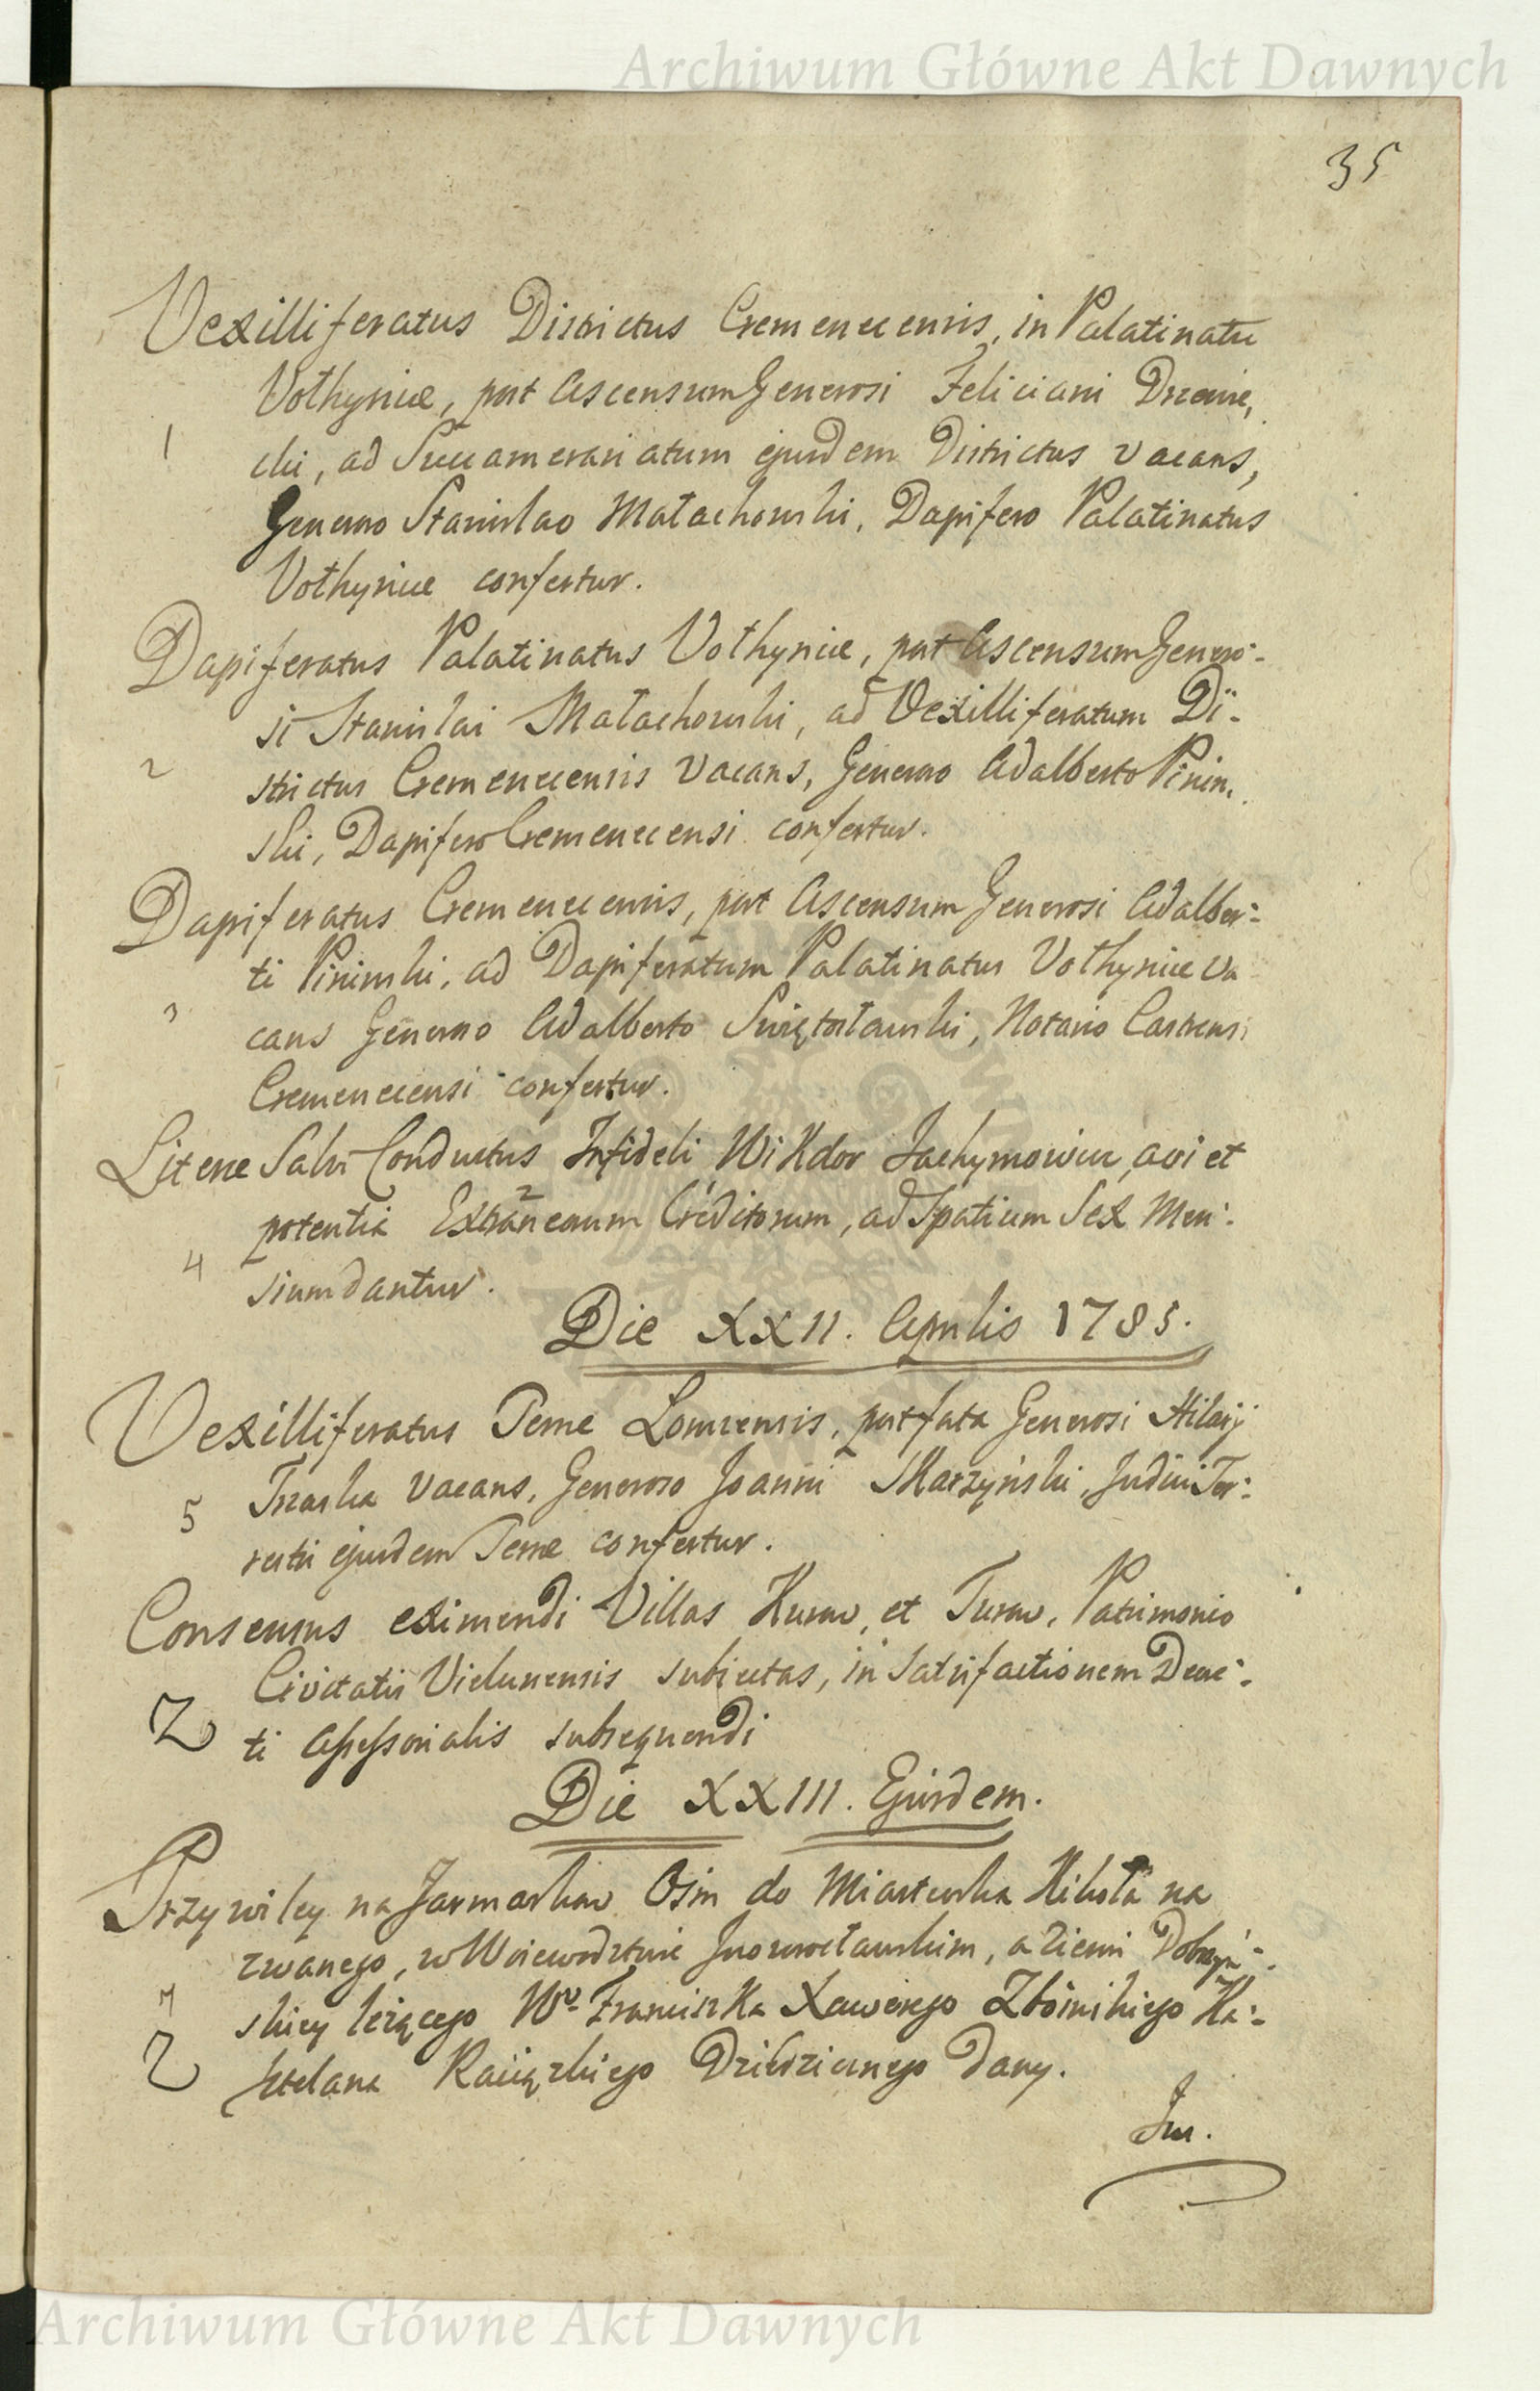 Archiwum Główne Akt Dawnych
35
Vexilliferatus Districtus Cremenecensis, in Palatinatu
Vołhyniæ, post Ascensum Generosi Feliciani Drzewie,
1
cki, ad Succamerariatum ejusdem Districtus vacans,
Generoso Stanislao Małachowski, Dapifero Palatinatus
Vołhyniæ confertur.
Dapiferatus Palatinatus Vołhyniæ, post Ascensum Genero:
si Stanislai Małachowski, ad Vexilliferatum Di:
2
strictus Cremenecensis vacans, Generoso Adalberto Pinin,
ski, Dapifero Cremenecensi confertur.
Dapiferatus Cremenecensis, post Ascensum Generosi Adalber:
ti Pininski, ad Dapiferatum Palatinatus Vołhyniæ va
3
cans Generoso Adalberto Swiętosławski, Notario Castrensi
Cremenecensi confertur.
Literæ Salvi Conductus Infideli Wikdor Jachymowicz, avi et
potentia Extraneorum Creditorum, ad Spatium Sex Men:
4
sium dantur.
Die XXII. Aprilis 1785.
Vexilliferatus Terræ Lomzensis, post fata Generosi Hilarij
5
Trzaska vacans, Generoso Joanni Skarzyński, Judici Ter:
restri ejusdem Terræ confertur.
Consensus eximendi Villas Kurow, et Turow, Patrimonio
Civitatis Vielunensis subiectas, in Satisfactionem Decre:
ti Assessorialis subsequendi
Die XXIII. Ejusdem.
Przywiley na Jarmarkow Ośm do Miasteczka Kikoła na
zwanego, w Woiewodztwie Inowrocławskim, a Ziemi Dobrzyń:
7
skiey leżącego Wo Franciszka Xawerego Zboinskiego Ka:
sztelana Raciąskiego Dziedzicznego dany.
Jur.
Archiwum Główne Akt Dawnych